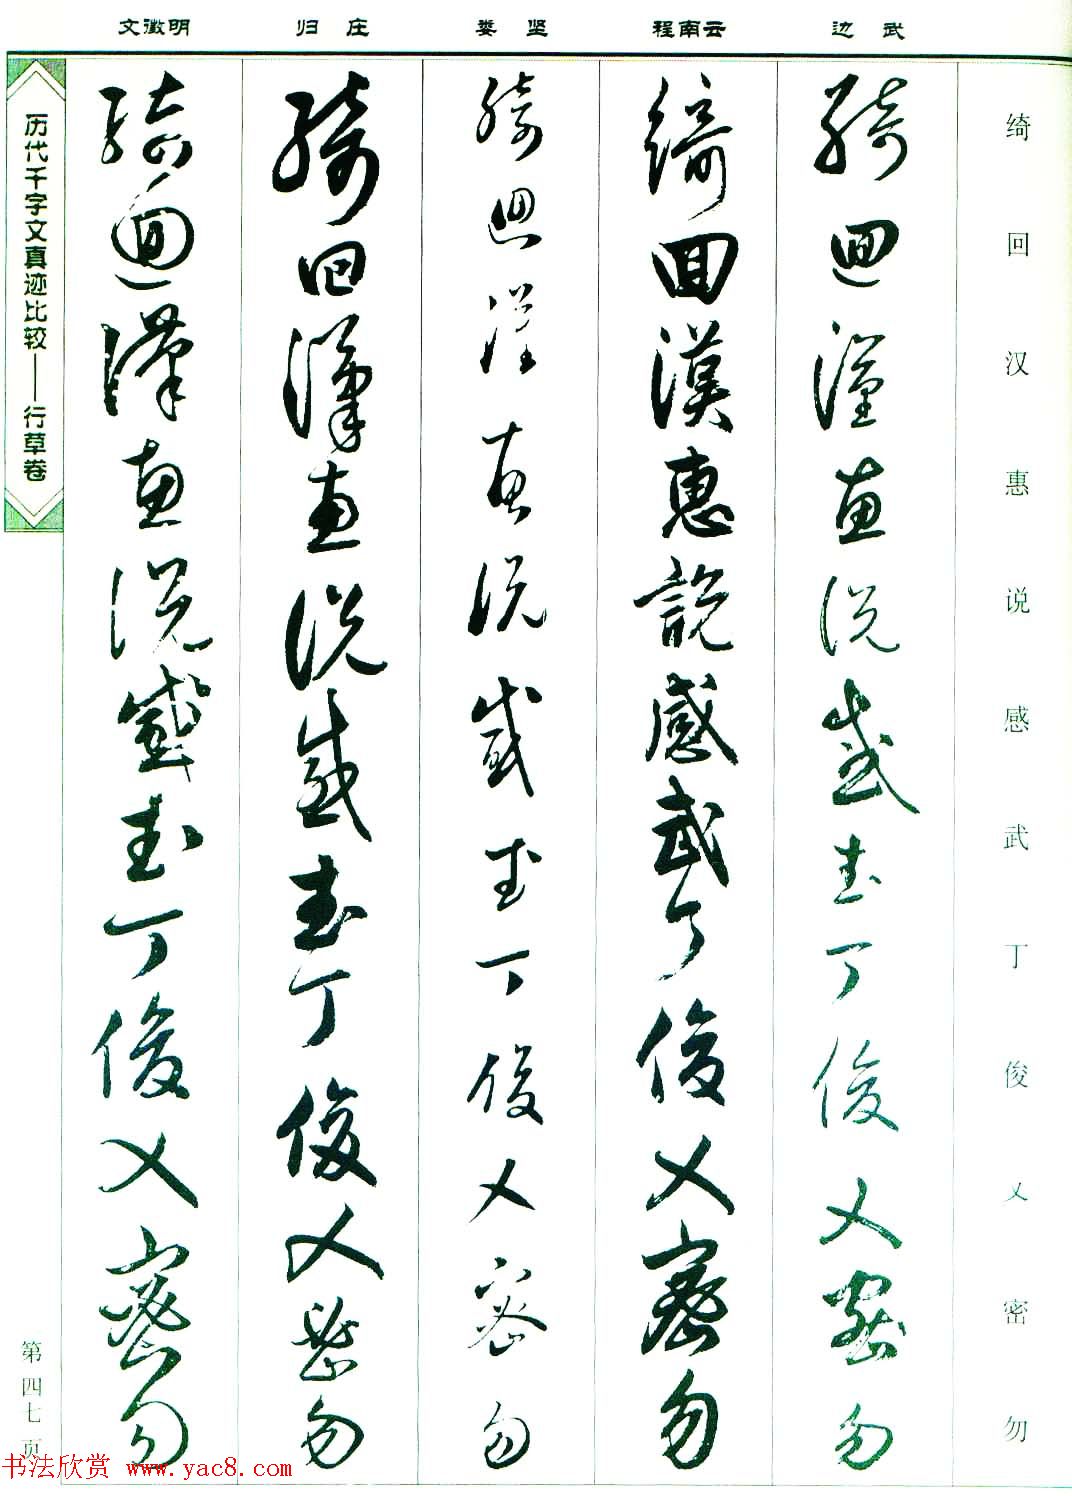 文徵明
归 庄
娄 坚
程南云
边 武
绮回汉惠说感武丁俊乂密勿
綺迴漢惠說感武丁俊乂密勿
綺回漢惠說感武丁俊乂密勿
綺迴漢惠說感武丁俊乂密勿
綺回漢惠說感武丁俊乂密勿
綺迴漢惠說感武丁俊乂密勿
历代千字文真迹比较——行草卷
第四七页
书法欣赏 www.yac8.com